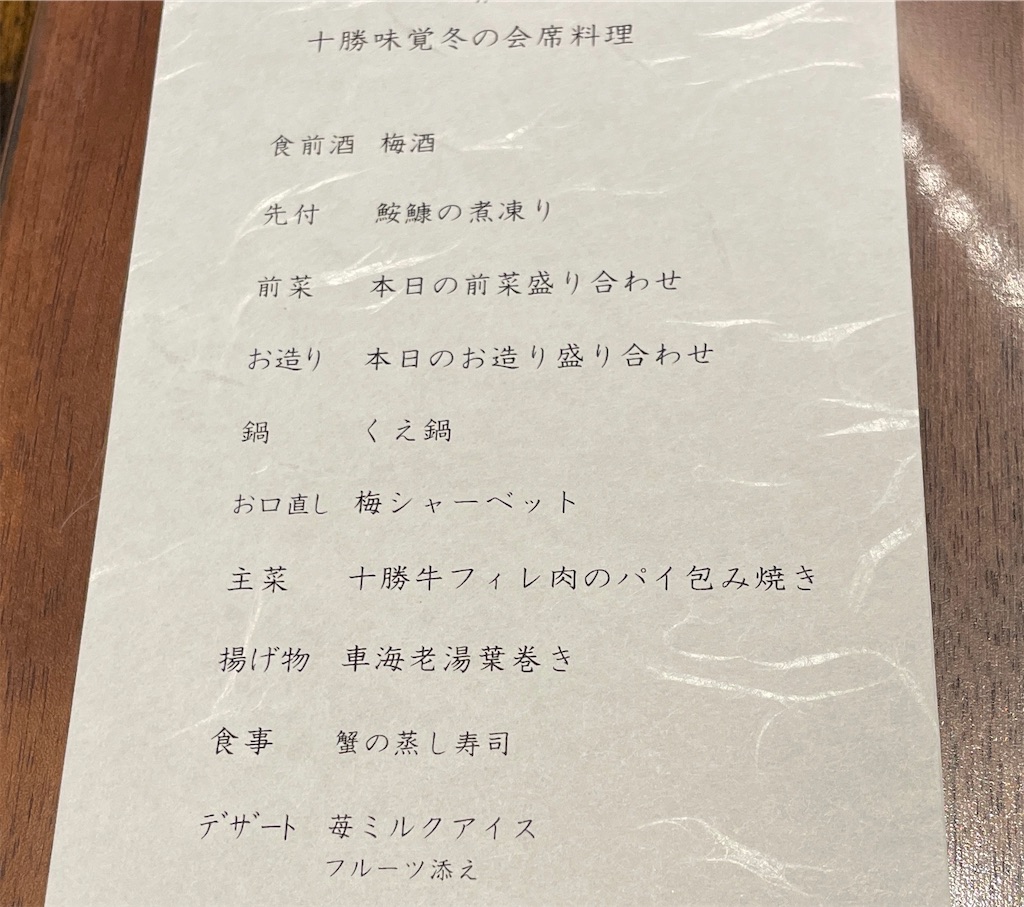 十勝味覚冬の会席料理
食前酒 梅酒
先付 鮟鱇の煮凍り
前菜 本日の前菜盛り合わせ
お造り 本日のお造り盛り合わせ
鍋 くえ鍋
お口直し 梅シャーベット
主菜 十勝牛フィレ肉のパイ包み焼き
揚げ物 車海老湯葉巻き
食事 蟹の蒸し寿司
デザート 苺ミルクアイス
フルーツ添え